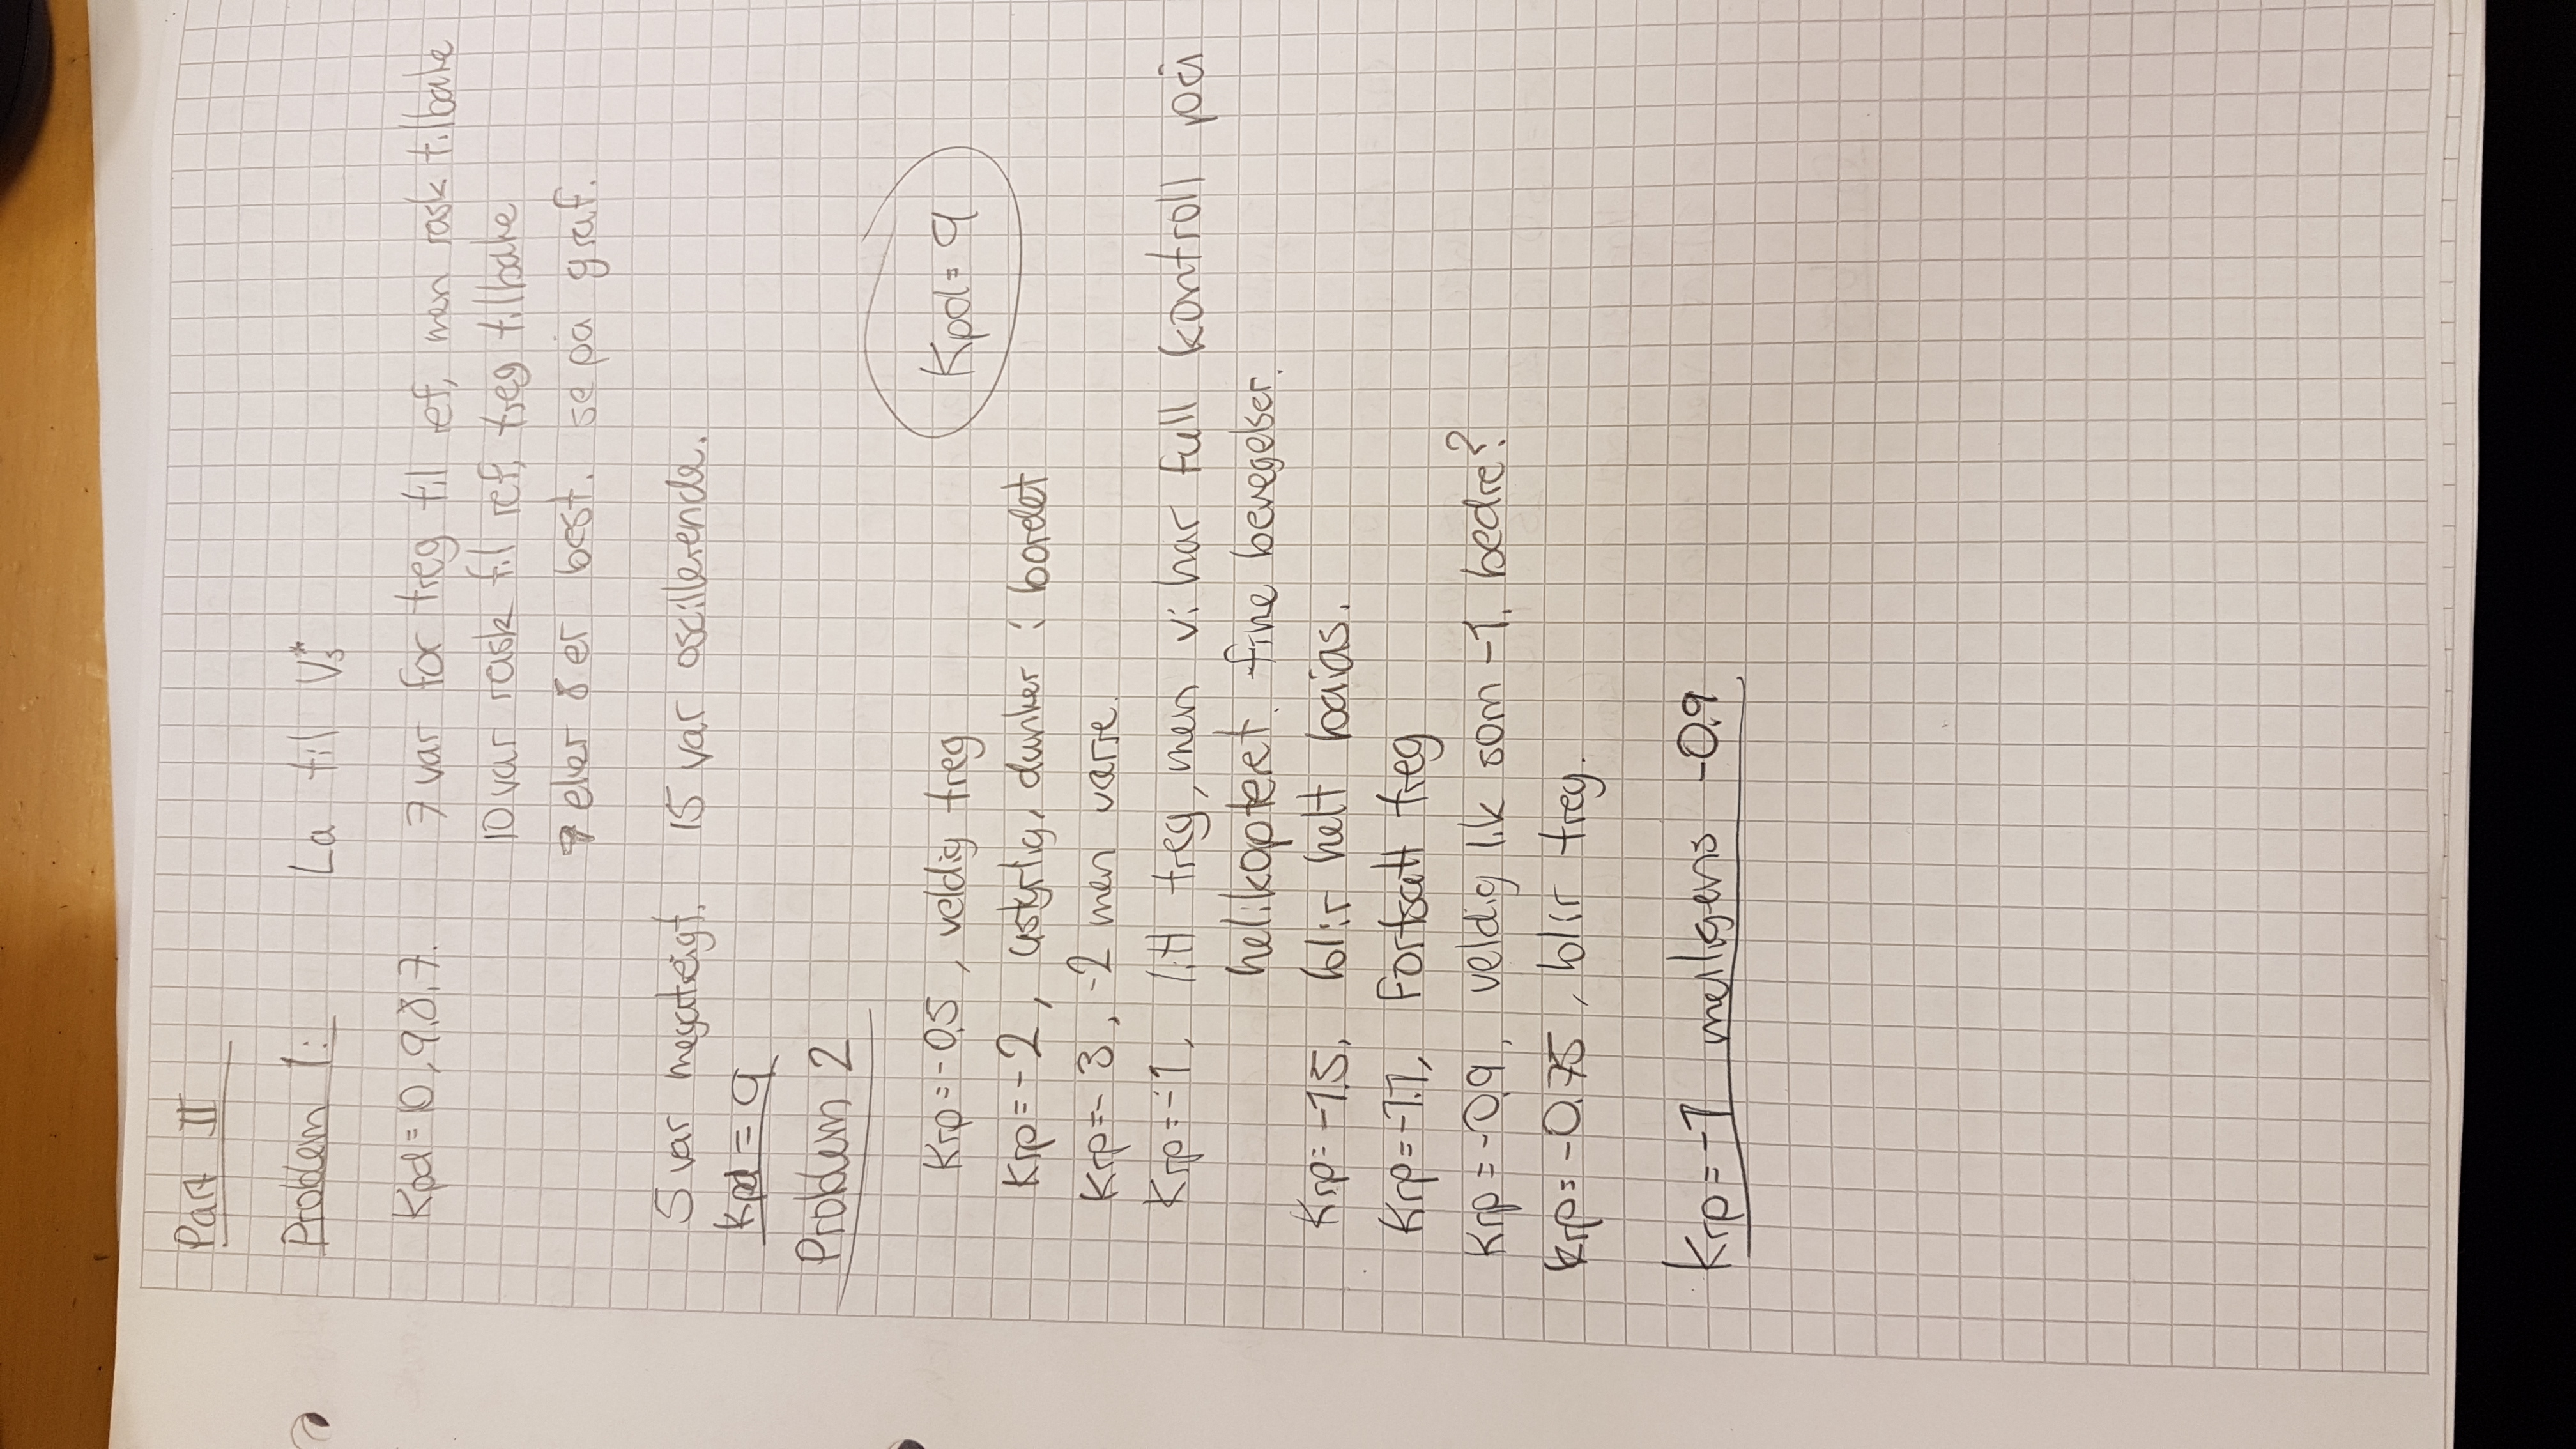 Part II
Problem 1: La til Vs*
Kpd = 10, 9, 8, 7. 7 var for treg til ref, men rask tilbake
10 var rask til ref, treg tilbake
9 eller 8 er best. se på graf.
5 var megatreigt. 15 var oscillerende.
Kpd = 9
Problem 2
Krp = -0.5, veldig treg Kpd = 9
Krp = -2, ustyrlig, dunker i bordet
Krp = -3, -2 men varre.
Krp = -1, litt treg, men vi har full kontroll på
helikopteret. fine bevegelser.
Krp = -1.5, blir helt baias.
Krp = -1.1, Fortsatt treg
Krp = -0.9, veldig lik som -1. bedre?
Krp = -0.75, blir treg.
Krp = -1 -0.9